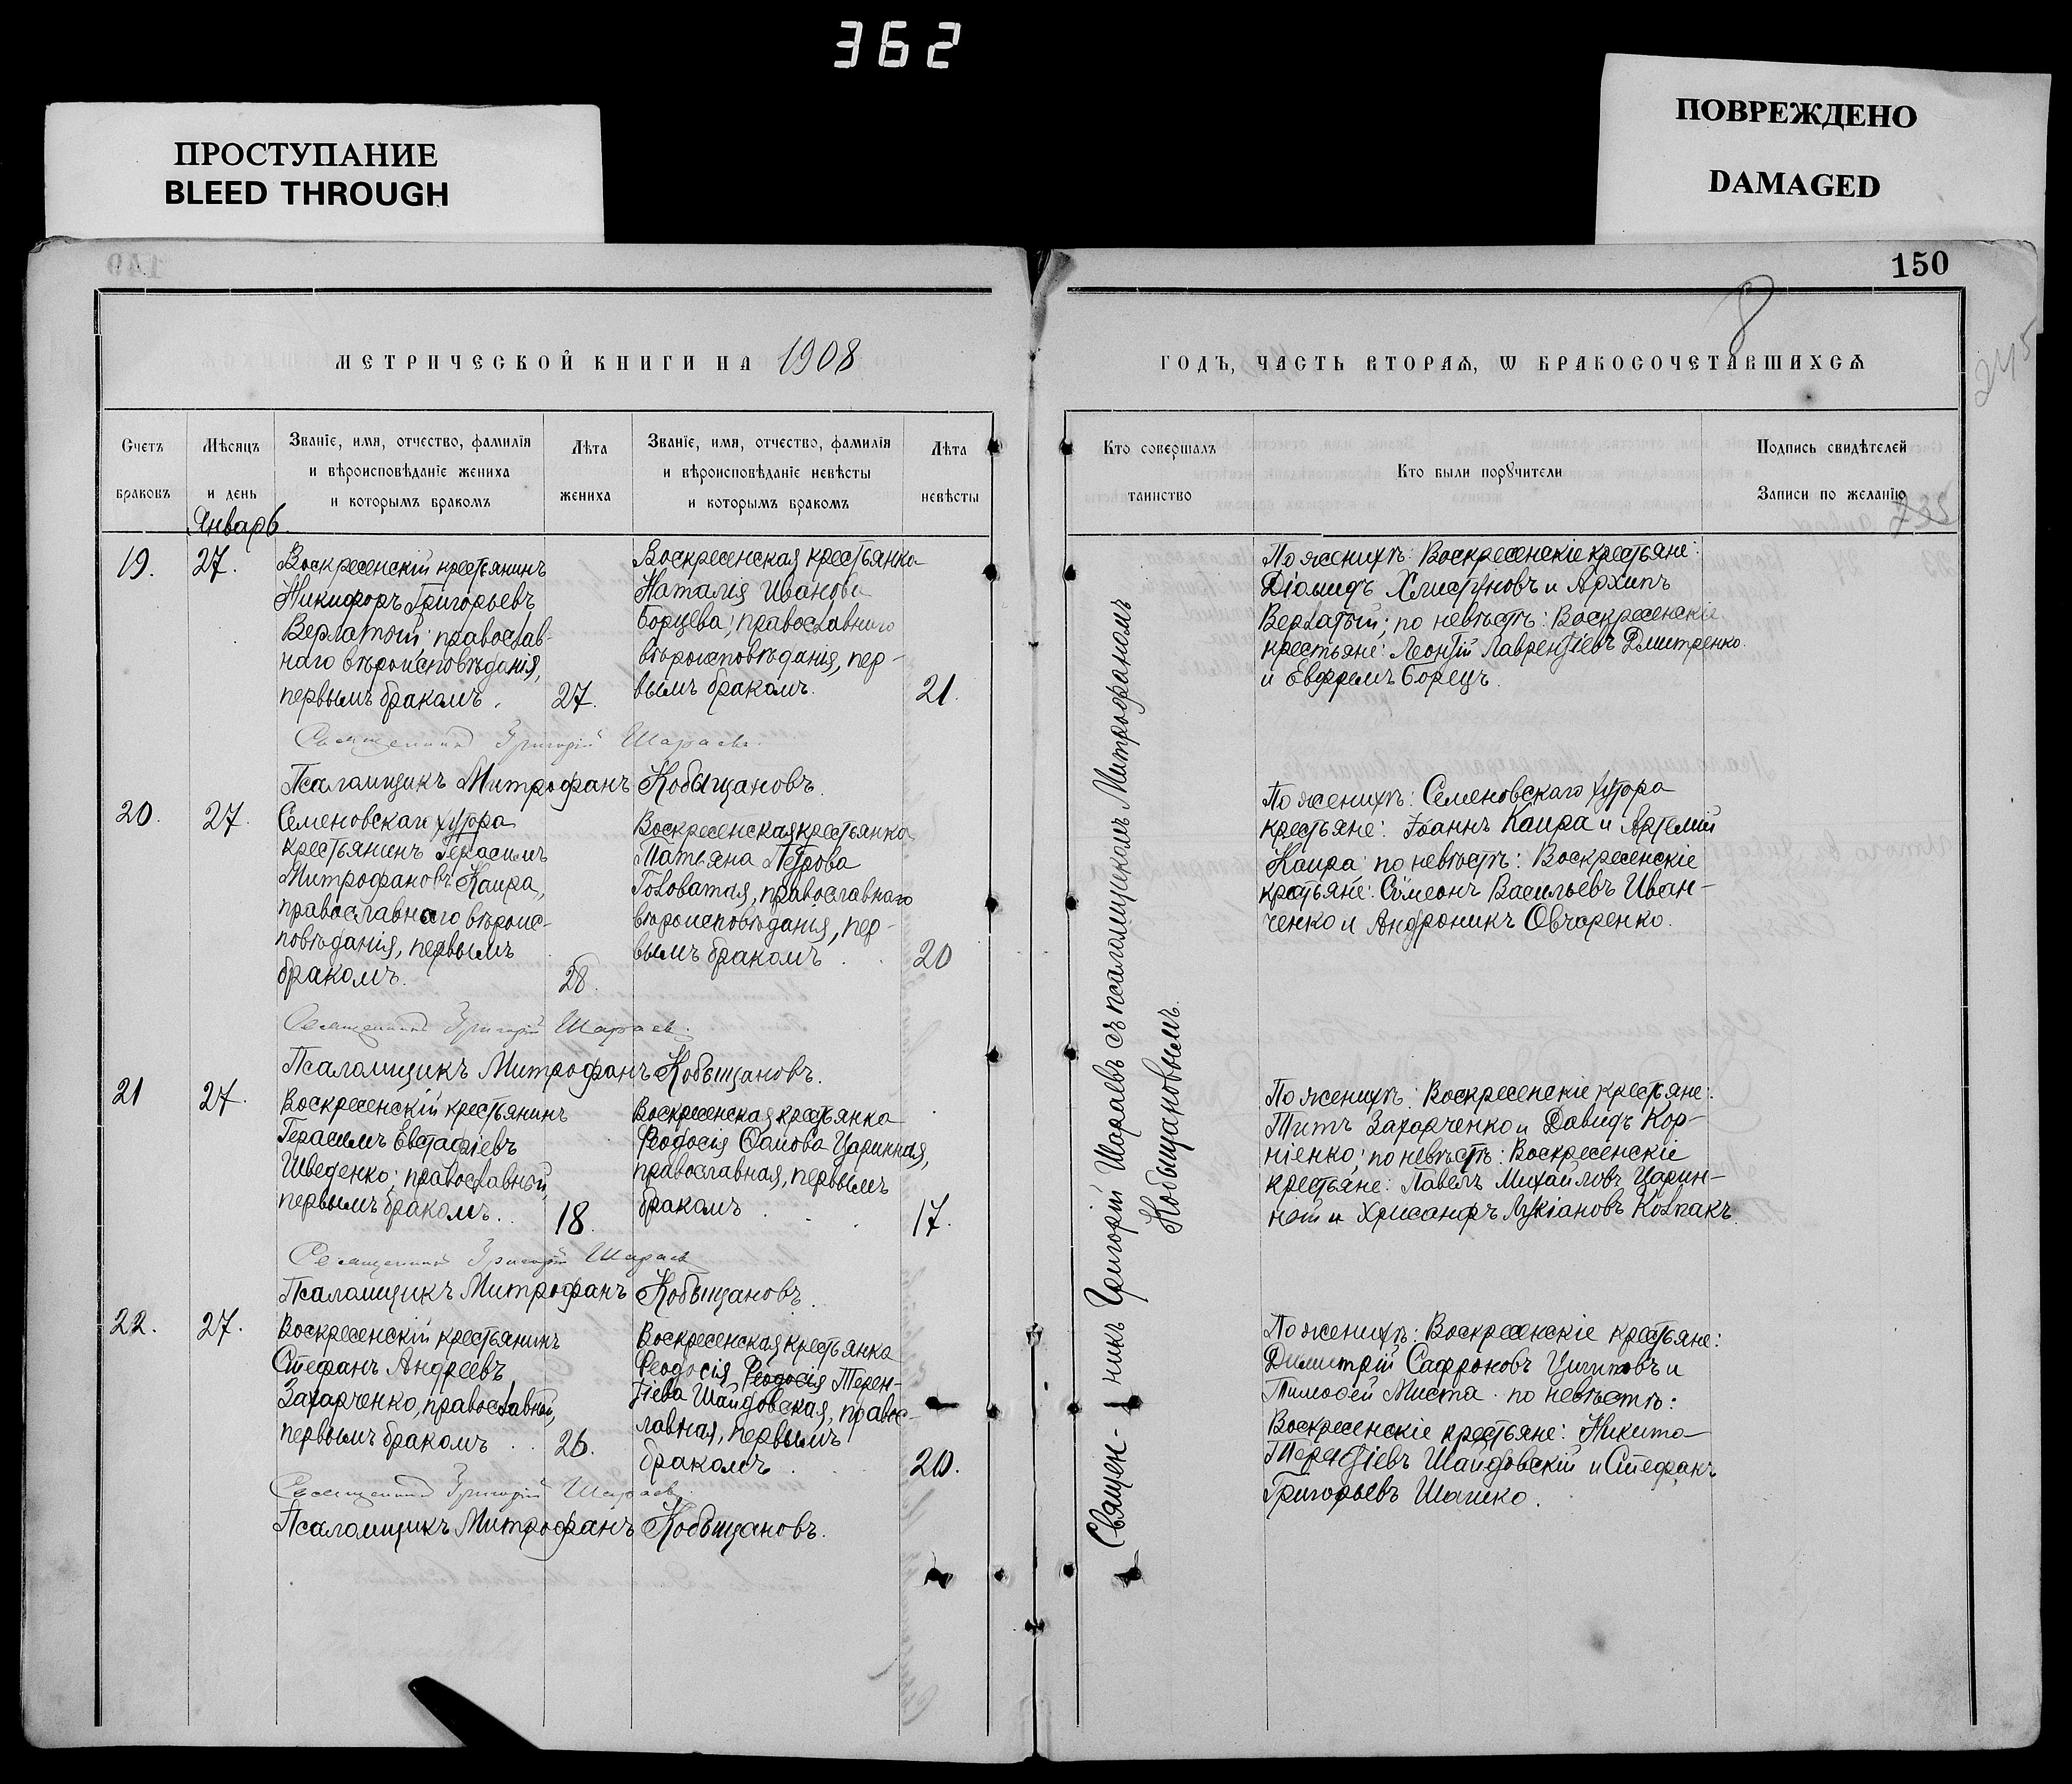 362
ПРОСТУПАНИЕ
BLEED THROUGH
ПОВРЕЖДЕНО
DAMAGED
150
8
245
МЕТРИЧЕСКОЙ КНИГИ НА 1908
ГОДЪ, ЧАСТЬ ВТОРАЯ, Ѡ БРАКОСОЧЕТАВШИХСЯ
Счетъ
браковъ
Мѣсяцъ
и день
Званіе, имя, отчество, фамилія
и вѣроисповѣданіе жениха
и которымъ бракомъ
Лѣта
жениха
Званіе, имя, отчество, фамилія
и вѣроисповѣданіе невѣсты
и которымъ бракомъ
Лѣта
невѣсты
Кто совершалъ
таинство
Кто были порꙋчители
Подпись свидѣтелей
Записи по желанію
235
Январь
19.
27.
Воскресенскій крестьянинъ
Никифоръ Григорьевъ
Верлатый; православ-
наго вѣроисповѣданія,
первымъ бракомъ.
27.
Воскресенская крестьянка
Наталія Иванова
Борцева; православнаго
вѣроисповѣданія, пер-
вымъ бракомъ.
21.
Священникъ Григорій Шараевъ.
Псаломщикъ Митрофанъ Кобыщановъ.
20.
27.
Семеновскаго хутора
крестьянинъ Герасимъ
Митрофановъ Каира,
православнаго вѣроис-
повѣданія, первымъ
бракомъ.
28.
Воскресенская крестьянка
Татьяна Петрова
Головатая, православнаго
вѣроисповѣданія, пер-
вымъ бракомъ.
20
Священникъ Григорій Шараевъ.
Псаломщикъ Митрофанъ Кобыщановъ.
21
27.
Воскресенскій крестьянинъ
Герасимъ Евстафіевъ
Шведенко; православный,
первымъ бракомъ.
18.
Воскресенская крестьянка
Ѳеодосія Саиова Царинная,
православная, первымъ
бракомъ
17.
Священникъ Григорій Шараевъ
Псаломщикъ Митрофанъ Кобыщановъ.
22.
27.
Воскресенскій крестьянинъ
Стефанъ Андреевъ
Захарченко, православный,
первымъ бракомъ
26.
Воскресенская крестьянка
Ѳеодосія Ѳеодосія Терен-
тіева Шайдовская, правос-
лавная, первымъ
бракомъ
20.
Священникъ Григорій Шараевъ.
Псаломщикъ Митрофанъ Кобыщановъ.
Священ- никъ Григорій Шараевъ съ псаломщикомъ Митрофаномъ
Кобыщановымъ.
По женихѣ: Воскресенскіе крестьяне:
Діомидъ Хлистуновъ и Архипъ
Верлатый; по невѣстѣ: Воскресенскіе
крестьяне: Леонтій Лаврентіевъ Дмитренко
и Евфремъ Борецъ.
По женихѣ: Семеновскаго хутора
крестьяне: Іоаннъ Каира и Артемій
Каира; по невѣстѣ: Воскресенскіе
крестьяне: Симеонъ Васильевъ Иван-
ченко и Андроникъ Овчаренко.
По женихѣ: Воскресенскіе крестьяне:
Титъ Захарченко и Давидъ Кор-
ніенко; по невѣстѣ: Воскресенскіе
крестьяне: Павелъ Михайловъ Царин-
ный и Хрисанфъ Лукіановъ Колпакъ.
По женихѣ: Воскресенскіе крестьяне:
Димитрій Сафроновъ и
Тимофей Миста. по невѣстѣ:
Воскресенскіе крестьяне: Никита
Терентіевъ Шайдовскій и Стефанъ
Григорьевъ Шашко.